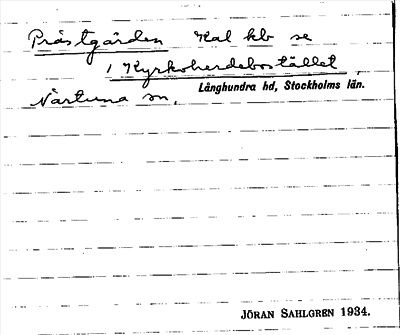 Prästgården Kal kb se
1 Kyrkoherdebostället
Närtuna sn,
Långhundra hd, Stockholms län.
JÖRAN SAHLGREN 1934.